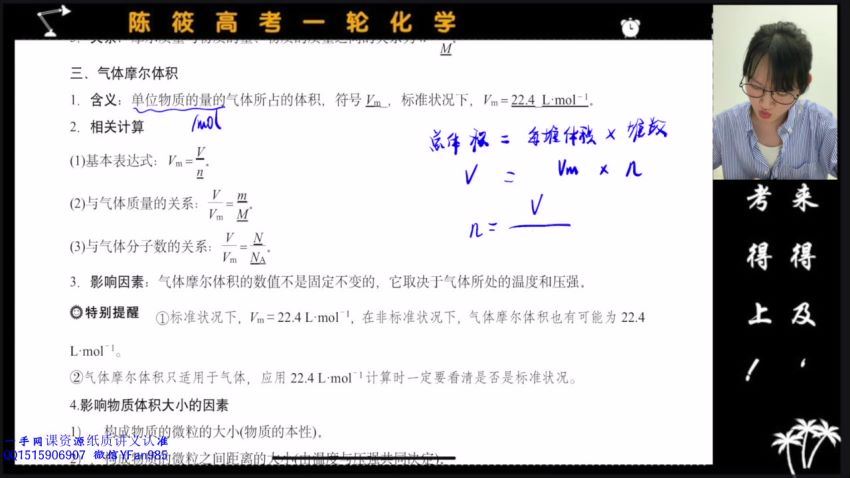 陈筱高考一轮化学
M
三、气体摩尔体积
1. 含义：单位物质的量的气体所占的体积，符号 Vm ，标准状况下，Vm=22.4 L·mol⁻¹。
/mol
2. 相关计算
总体积 = 每堆体积 × 堆数
(1)基本表达式：Vm=V/n。
V = Vm × n
(2)与气体质量的关系：V/Vm=m/M。
n= V
(3)与气体分子数的关系：V/Vm=N/NA。
3. 影响因素：气体摩尔体积的数值不是固定不变的，它取决于气体所处的温度和压强。
特别提醒 ①标准状况下，Vm=22.4 L·mol⁻¹，在非标准状况下，气体摩尔体积也有可能为 22.4
L·mol⁻¹。
②气体摩尔体积只适用于气体，应用 22.4 L·mol⁻¹计算时一定要看清是否是标准状况。
4.影响物质体积大小的因素
1）．构成物质的微粒的大小(物质的本性)。
构成物质的微粒之间距离的大小(由温度与压强共同决定)。
一手网课资源纸质讲义认准
QQ1515906907 微信YFan985
来得及，
考得上！